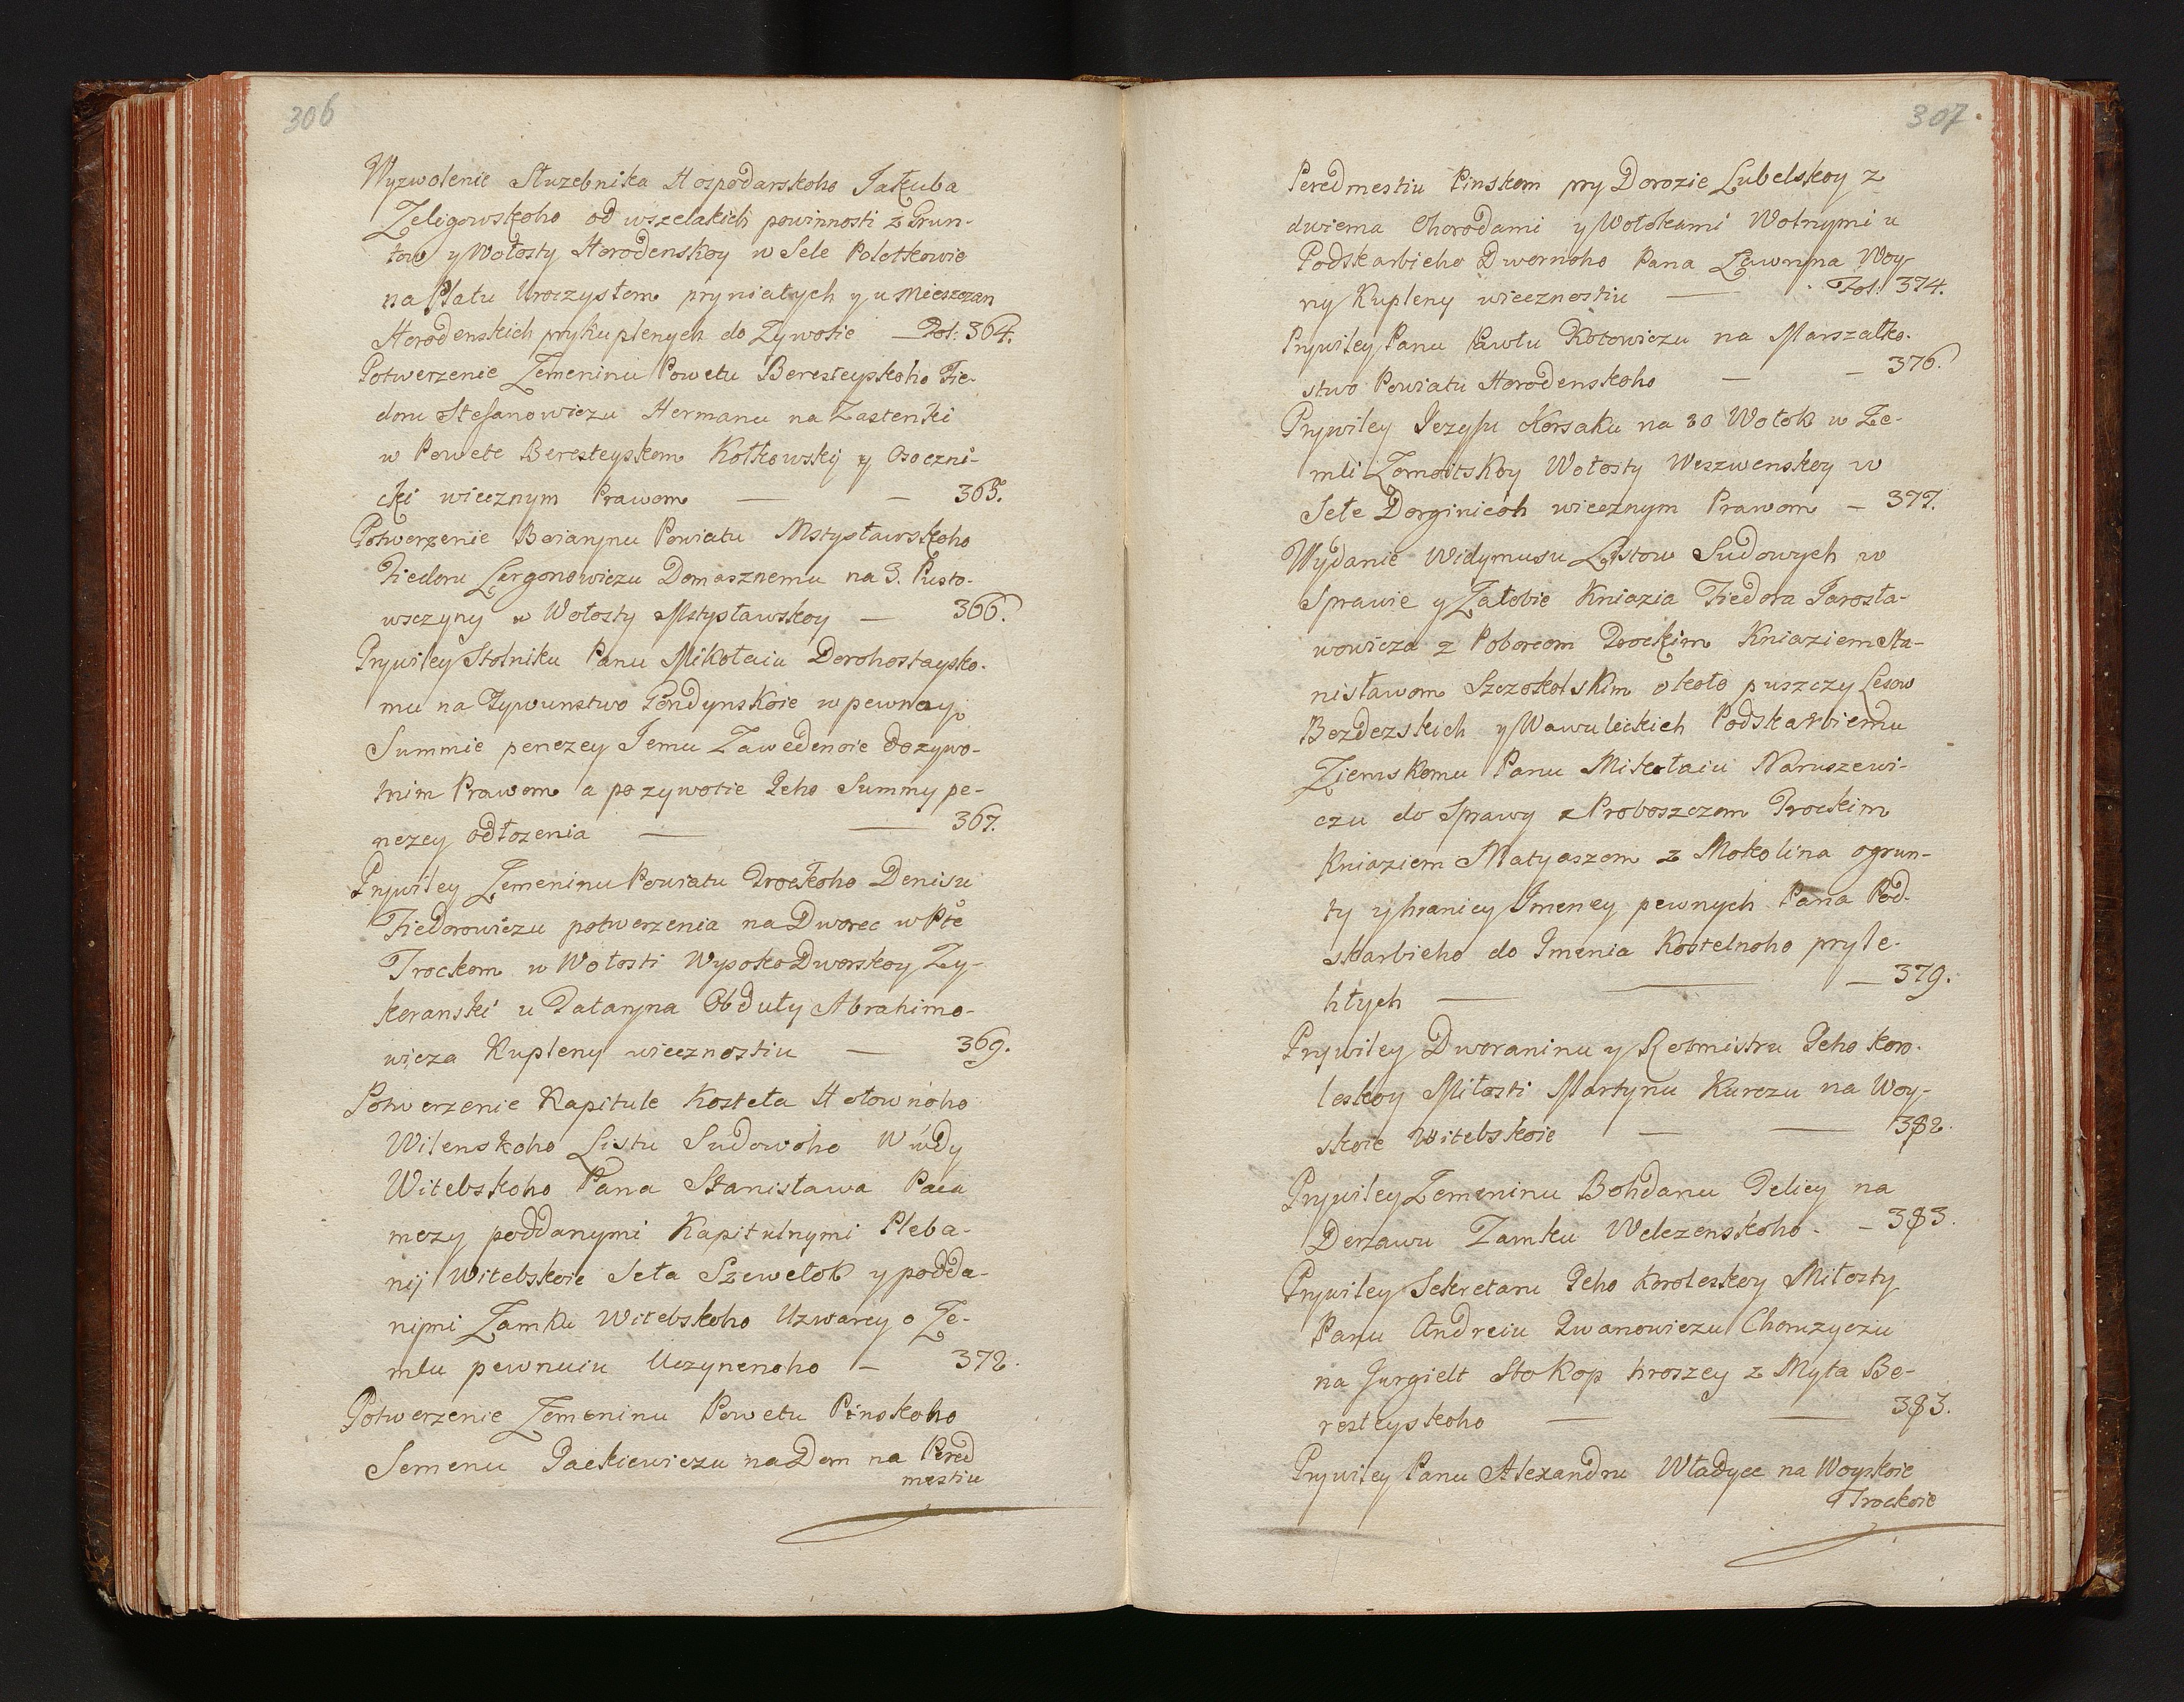 306
Wyzwolenie Służebnika Hospodarskoho Jakuba
Zeligowskoho od wszelakich powinnosti z Grun-
tow y Wołosty Horodenskoy w Sele Polotkowie
na Płatu Uroczystom pryniatych y u Mieszczan
Horodenskich prykuplenych do Zywotie — Fol: 364.
Potwerzenie Zemeninu Powetu Beresteyskoho Fie-
doru Stefanowiczu Hermanu na Zastenki
w Powete Beresteyskom Kotkowskij y Osoczni-
cki wiecznym Prawom — — 365.
Potwerzenie Boiarynu Powiatu Mstysławskoho
Fiedoru Lergonowiczu Domasznemu na 3. Pusto-
wsczyny w Wołosty Mstysławskoy — 366.
Prywiley Stolniku Panu Mikołaiu Dorohostaysko-
mu na Tywunstwo Gondynskoie w pewnoy
Summie penezey Jemu Zawedenoie dozywo-
tnim Prawom a po zywotie Jeho Summy pe-
nezey odłozenia — — 367.
Prywiley Zemeninu Powiatu Trockoho Denisu
Fiedorowiczu potwerzenia na Dworec w Pte
Trockom w Wołosti WysokoDworskoy Zy-
keranski u Tataryna Obduły Abrahimo-
wicza Kupleny wiecznostiu — 369.
Potwerzenie Kapitule Kosteła Hołownoho
Wilenskoho Listu Sudowoho Wwdy
Witebskoho Pana Stanisława Paca
mezy poddanymi Kapitulnymi Pleba-
nij Witebskoie Seła Szewełok y podda-
nymi Zamku Witebskoho Uzwarcy o Ze-
mlu pewnuiu Uczynenoho — 372.
Potwerzenie Zemeninu Powetu Pinskoho
Semenu Jackiewiczu na Dom na Pered
mestiu
307.
Peredmestiu Pinskom pry Dorozie Lubelskoy z
dwiema Ohorodami y Wołokami Wolnymi u
Podskarbieho Dwornoho Pana Ławryna Woy-
ny Kupleny wiecznostiu — Fol: 374.
Prywiley Panu Pawłu Kotowiczu na Marszałko-
stwo Powiatu Horodenskoho — — 376.
Prywiley Jezyfu Korsaku na 30 Wołok w Ze-
mli Zomoitskoy Wołosty Weszwenskoy w
Sele Dorginicoh wiecznym Prawom — 377.
Wydanie Widymusu Listow Sudowych w
Sprawie y Załobie Kniazia Fiedora Jarosła-
wowicza z Poborcom Trockim Kniaziem Sta-
nisławom Szczokolskim około puszczy Lesow
Bezdezskich y Wawuleckich Podskarbiemu
Ziemskomu Panu Mikołaiu Naruszewi-
czu do Sprawy z Proboszczom Trockim
Kniaziem Matyaszom z Mokolina o grun-
ty y hranicy Imeney pewnych Pana Pod-
skarbieho do Imenia Kostelnoho pryle-
hłych — — — 379.
Prywiley Dworaninu y Rotmistru Jeho koro-
leskoy Miłosti Martynu Kurczu na Woy-
skoie Witebskoie — — 382.
Prywiley Zemeninu Bohdanu Telicy na
Derzawu Zamku Welezenskoho. — 383.
Prywiley Sekretaru Jeho Koroleskoy Miłosty
Panu Andreiu Iwanowiczu Chomzyczu
na Jurgielt Sto Kop hroszey z Myta Be-
resteyskoho — — 383.
Prywiley Panu Alexandru Władyce na Woyskoie
Trockoie